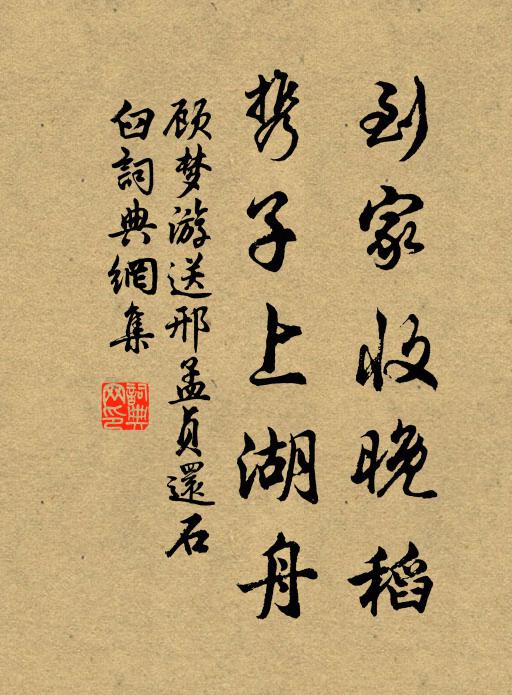 到家收晚稻
携子上湖舟
顾梦游送邢孟贞還石
臼詞典網集
詞典
网印